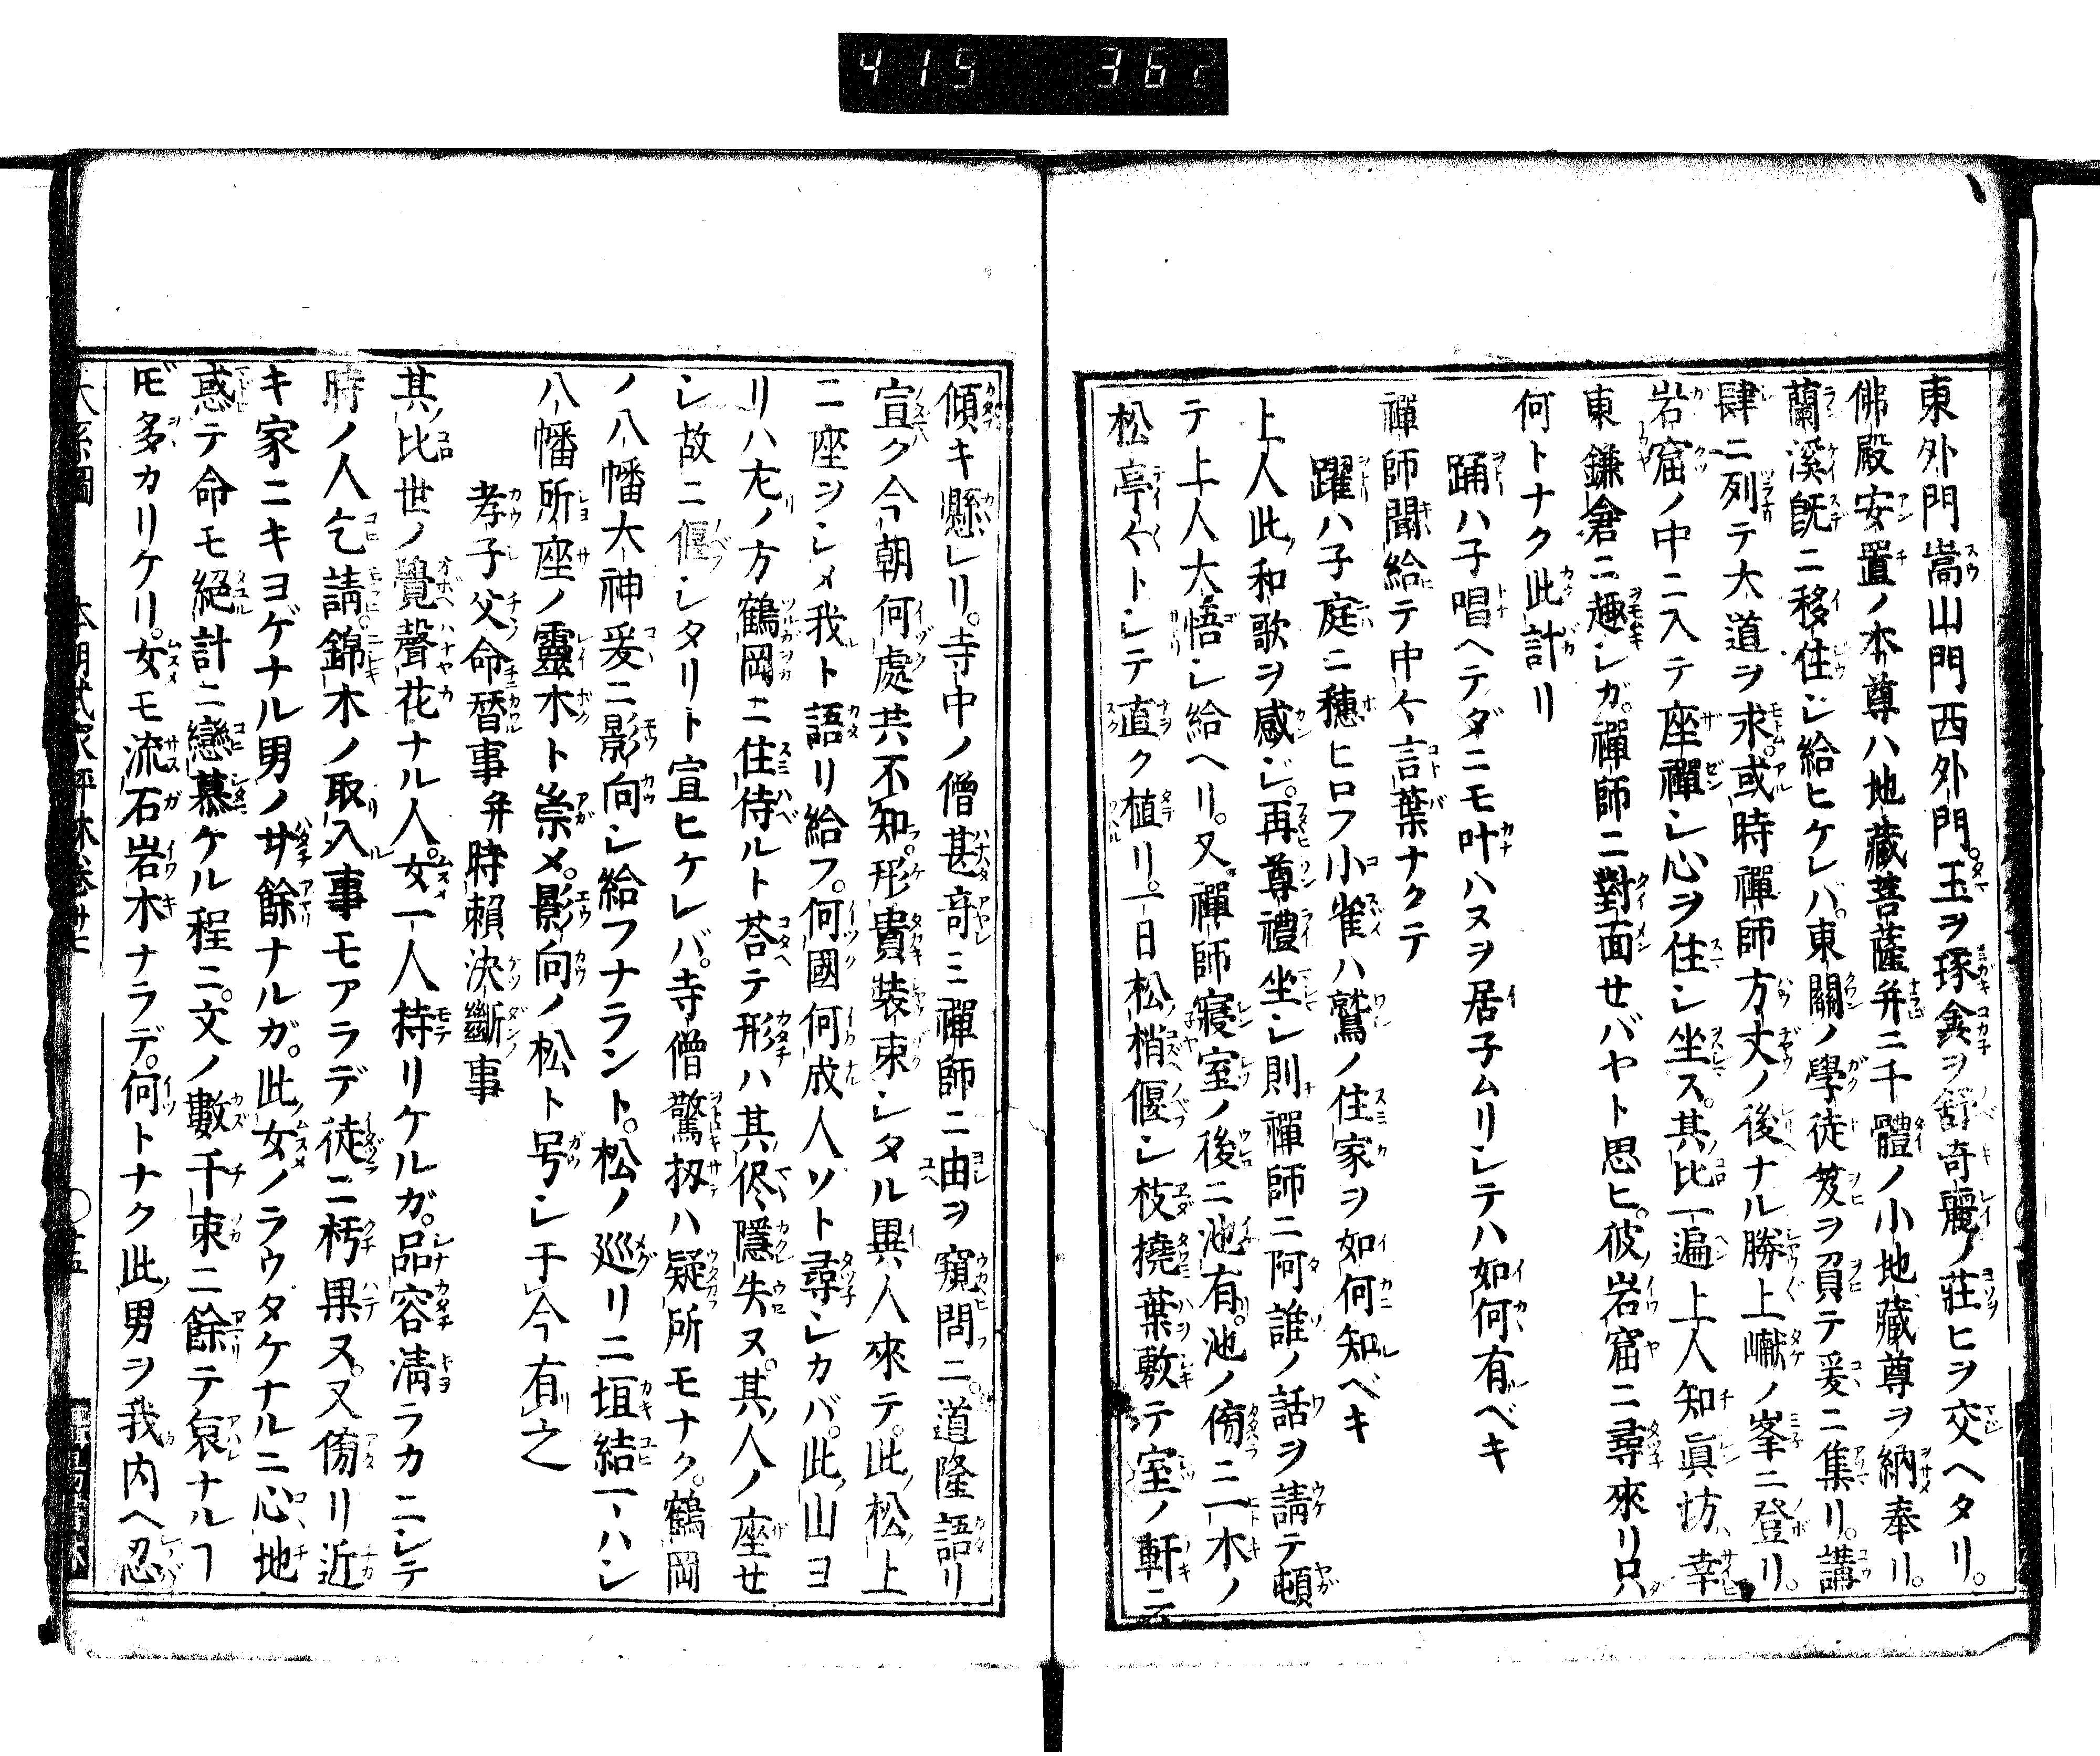 415 362
東外門嵩山門西外門。玉ヲ琢金ヲ舒奇麗ノ莊ヒヲ交ヘタリ。
佛殿安置ノ本尊ハ地藏菩薩并ニ千體ノ小地藏尊ヲ納奉リ。
蘭溪既ニ移住シ給ヒケレバ。東關ノ學徒笈ヲ負テ爰ニ集リ。講
肆ニ列テ大道ヲ求。或時禪師方丈ノ後ナル勝上巘ノ峯ニ登リ。
岩窟ノ中ニ入テ座禪シ心ヲ住シ坐ス。其比一遍上人知眞坊幸
東鎌倉ニ趣シガ。禪師ニ對面セバヤト思ヒ。彼岩窟ニ尋來リ只
何トナク此計リ
踊ハ子唱ヘテダニモ叶ハヌヲ居子ムリシテハ如何有ベキ
禪師聞給テ中〱言葉ナクテ
躍ハ子庭ニ穗ヒロフ小雀ハ鷲ノ住家ヲ如何知ベキ
上人此和歌ヲ感ジ。再尊禮坐シ則禪師ニ阿誰ノ話ヲ請テ頓
テ上人大悟シ給ヘリ。又禪師寢室ノ後ニ池有。池ノ傍ニ一木ノ
松亭〱トシテ直ク植リ。一日松梢偃シ枝撓葉敷テ室ノ軒ニ
傾キ懸レリ。寺中ノ僧甚奇ミ禪師ニ由ヲ窺問ニ。道隆語リ
宣ク今朝何處共不知。形貴裝束シタル異人來テ。此松上
ニ座ヲシメ我ト語リ給フ。何國何成人ソト尋シカバ。此山ヨ
リハ左ノ方鶴岡ニ住侍ルト荅テ形ハ其侭隱失ヌ。其人ノ座セ
シ故ニ偃シタリト宣ヒケレバ。寺僧驚扨ハ疑所モナク。鶴岡
ノ八幡大神爰ニ影向シ給フナラント。松ノ廻リニ垣結一ハシ
八幡所座ノ靈木ト崇メ。影向ノ松ト号シ于今有之
孝子父命替事并時賴決斷事
其比世ノ覺聲花ナル人。女一人持リケルガ。品容淸ラカニシテ
時ノ人乞請。錦木ノ取入事モアラデ徒ニ朽果ヌ。又傍リ近
キ家ニキヨゲナル男ノ廿餘ナルガ。此女ノラウダケナルニ心地
惑テ命モ絕計ニ戀慕ケル程ニ。文ノ數千束ニ餘テ哀ナルヿ
𪜈多カリケリ。女モ流石岩木ナラデ。何トナク此男ヲ我内ヘ忍